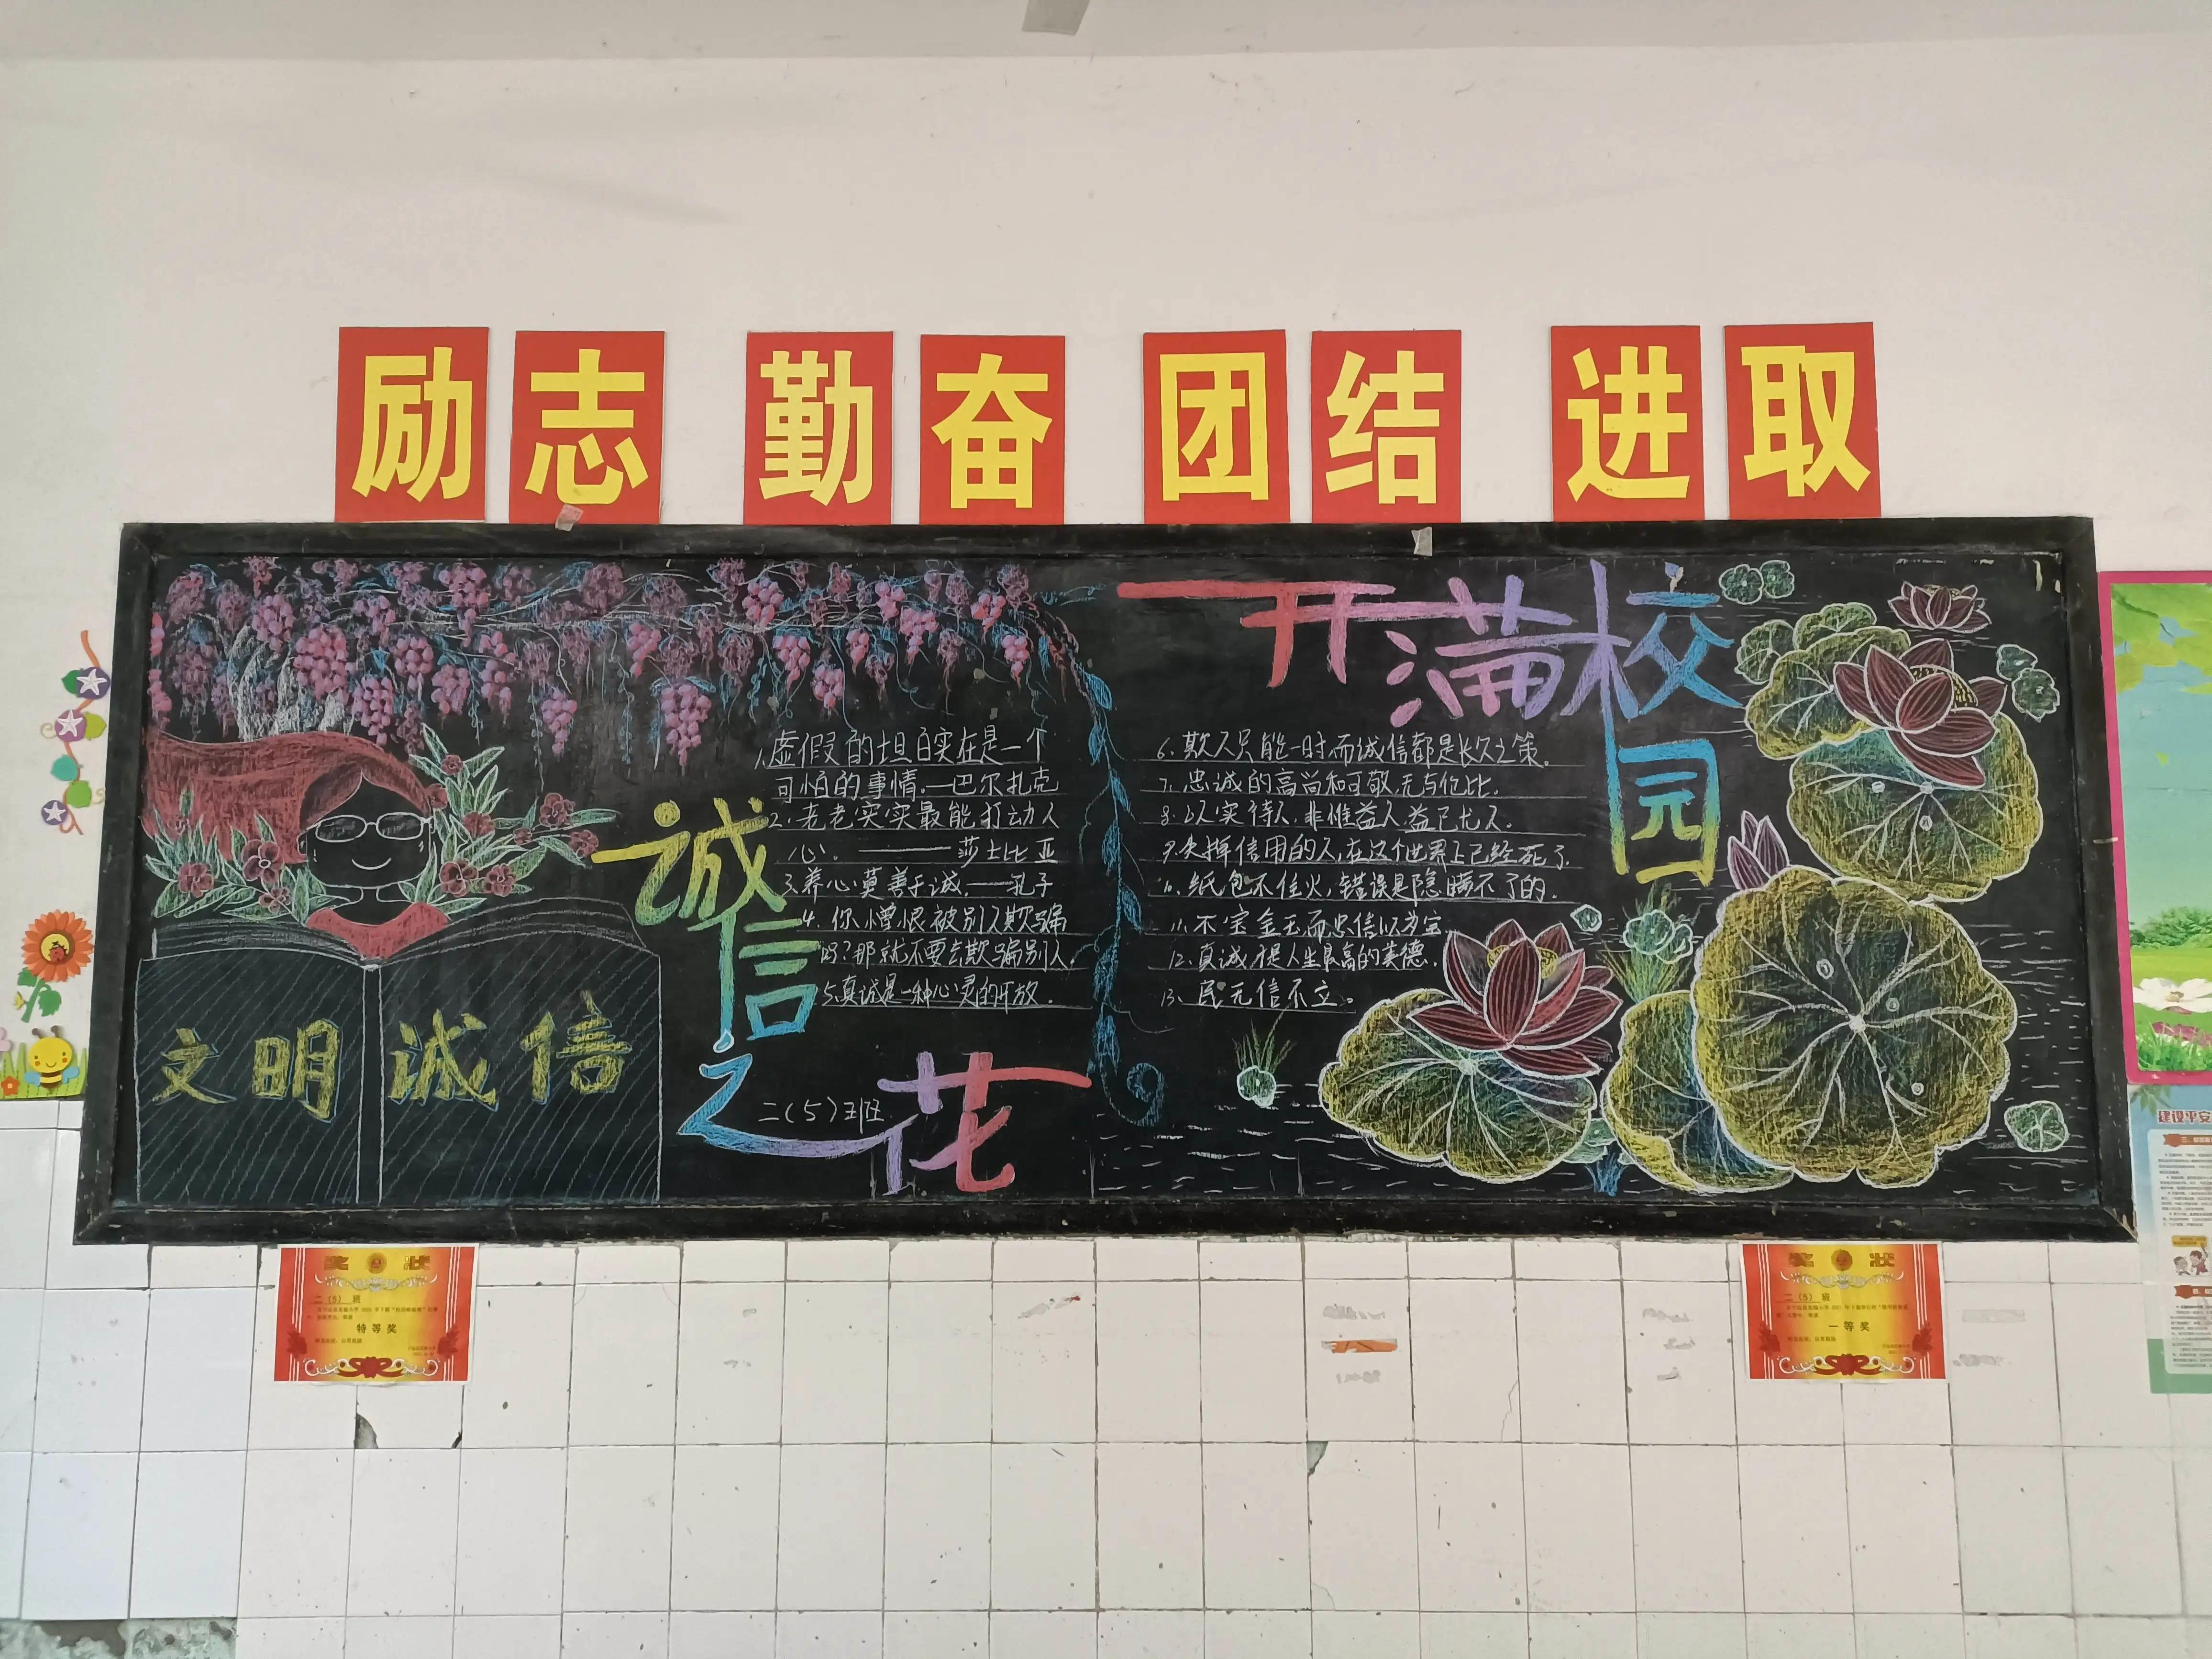 励志 勤奋 团结 进取
诚信之花
开满校园
文明 诚信
1.虚假的坦白实在是一个
可怕的事情。——巴尔扎克
2.老老实实最能打动人
心。———莎士比亚
3.养心莫善于诚——孔子
4.你憎恨被别人欺骗
吗?那就不要去欺骗别人。
5.真诚是一种心灵的开放.
二(5)班
6.欺人只能一时,而诚信都是长久之策。
7.忠诚的高尚和可敬,无与伦比.
8.以实待人,非惟益人,益己尤大.
9.失掉信用的人,在这个世界上已经死了.
10.纸包不住火,错误是隐瞒不了的.
11.不宝金玉而忠信以为宝.
12.真诚才是人生最高的美德.
13、民无信不立。
奖 状
二(5)班
特等奖
奖 状
二(5)班
一等奖
建设平安